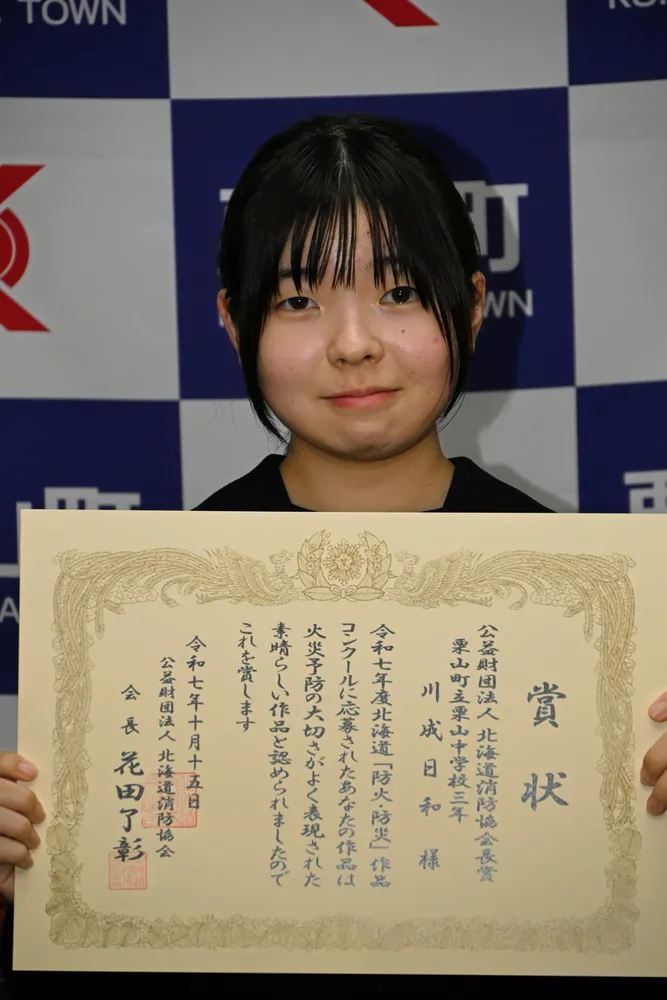 TOWN
町
WN
山町
賞状
公益財団法人 北海道消防協会長賞
栗山町立栗山中学校三年
川成日和 様
令和七年度北海道「防火・防災」作品
コンクールに応募されたあなたの作品は
火災予防の大切さがよく表現された
素晴らしい作品と認められましたので
これを賞します
令和七年十月十五日
公益財団法人 北海道消防協会
会長 花田了彰